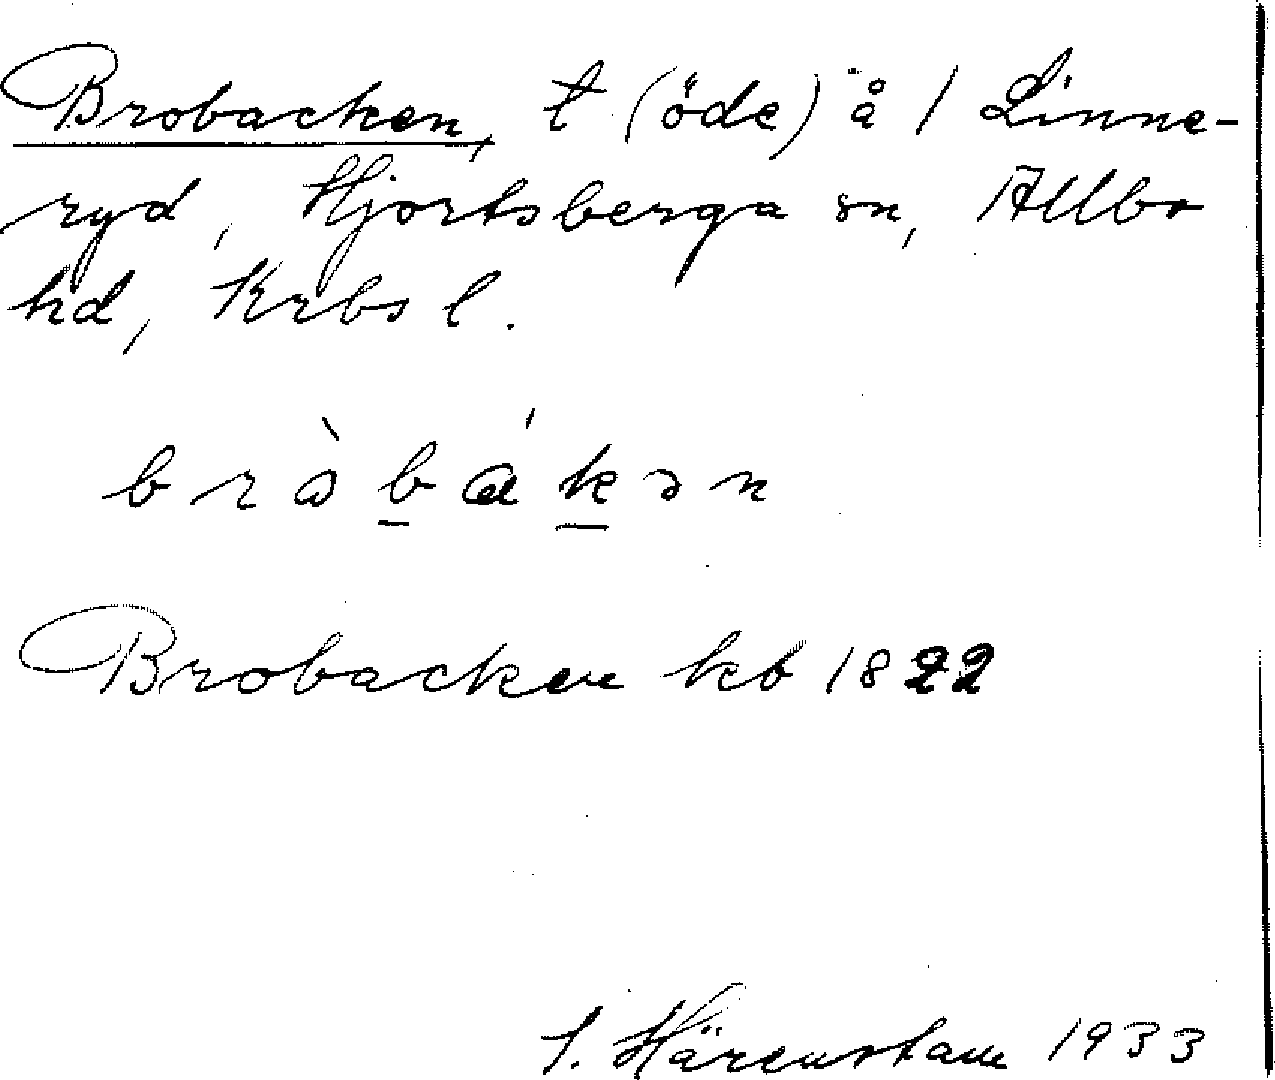 Brobacken, t (öde) å 1 Linne-
ryd, Hjortsberga sn, Allbo
hd, Krbs l.
bràbákən
Brobacken kb 1822
S. Härenstam 1933